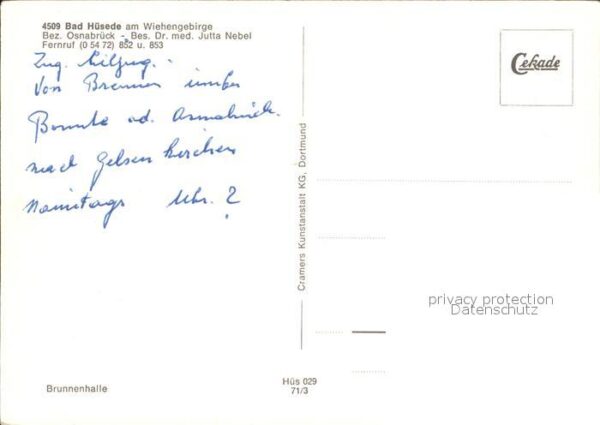 4509 Bad Hüsede am Wiehengebirge
Bez. Osnabrück - Bes. Dr. med. Jutta Nebel
Fernruf (0 54 72) 852 u. 853
Zug. Eilzug. -
Von Bremen
Bomte od. Osnabrück.
nach Gelsenkirchen
Uhr. ?
Brunnenhalle
Hüs 029
71/3
Cramers Kunstanstalt KG, Dortmund
Cekade
privacy protection
Datenschutz